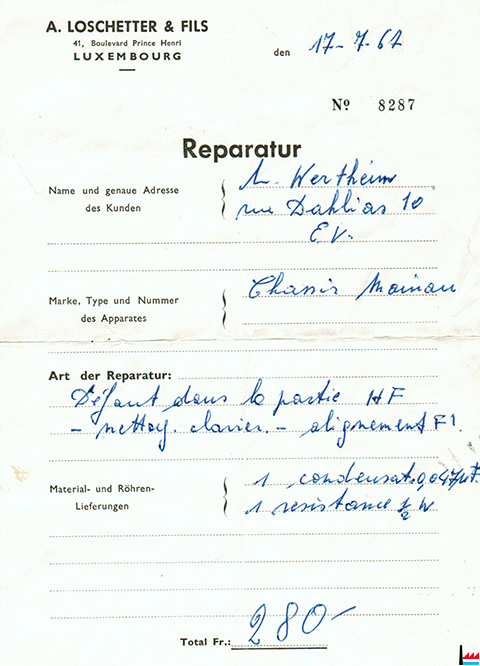 A. LOSCHETTER & FILS
41, Boulevard Prince Henri
LUXEMBOURG
den 17-7-62
Nº 8287
Reparatur
Name und genaue Adresse des Kunden
Wertheim
rue Dahlias 10
E.V.
Marke, Type und Nummer des Apparates
Chassis Mainau
Art der Reparatur:
Défaut dans la partie HF
- nettoy. clavier. - alignement F1.
Material- und Röhren-Lieferungen
1 condensat. 0,047µF.
1 resistance ½ W
Total Fr.: 280-